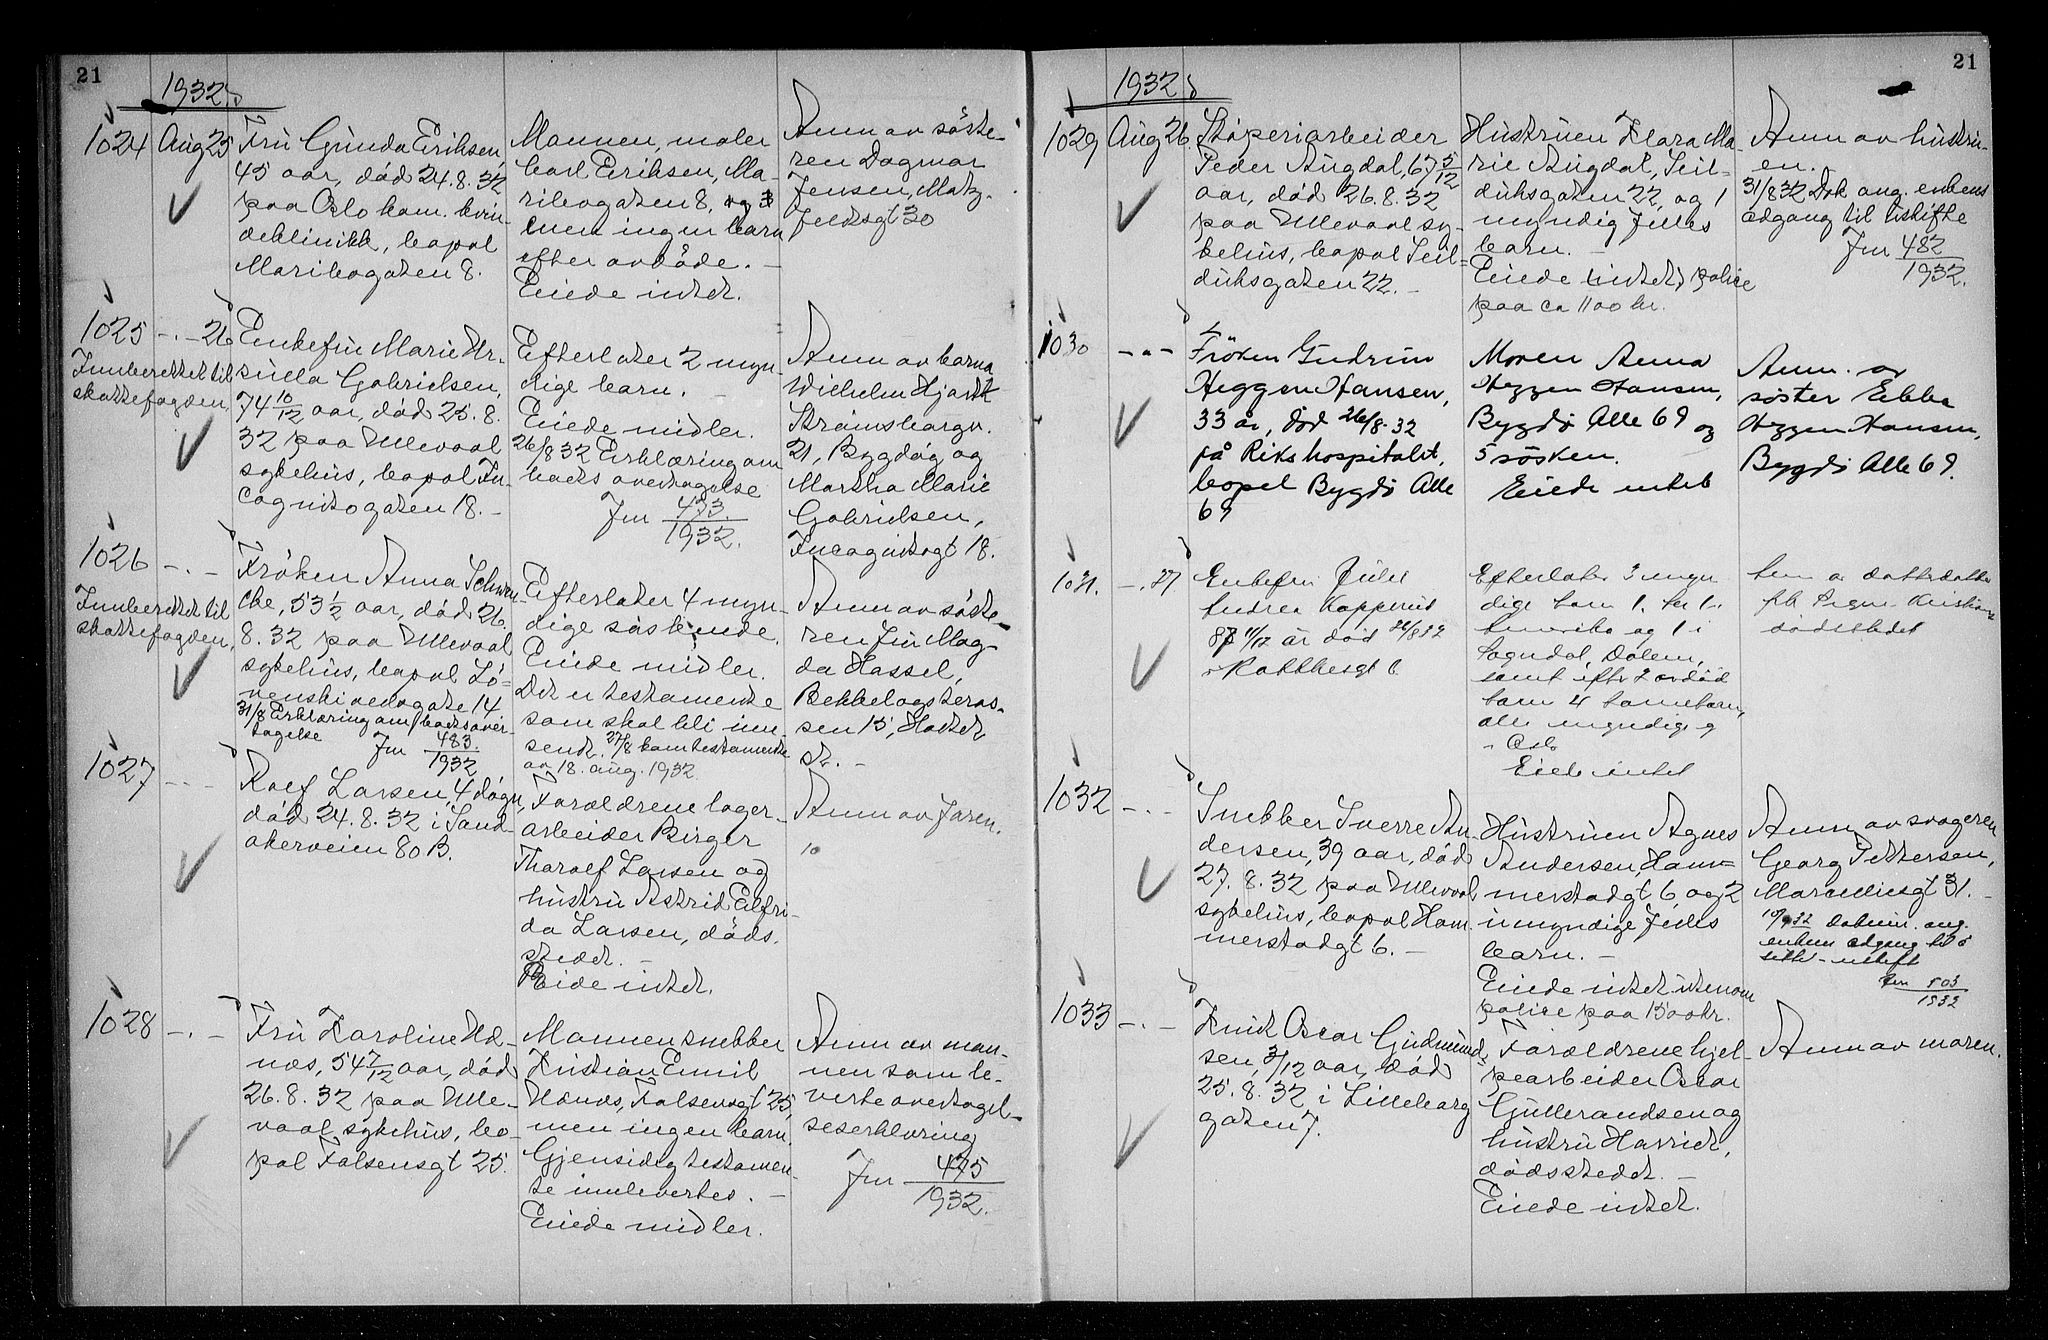 21
1932
1024
Aug 25
Fru Gunda Eriksen,
45 aar, död 24.8.32
paa Oslo kom. kvin-
deklinikk, bopæl
Maribogaten 8.
Mannen, maler
Carl Eriksen, Ma-
ribogaten 8,
men ingen barn
efter avdöde. -
Eiede intet.
Anm av söste-
ren Dagmar
Jensen, Matz-
feldtsgt 30
1025
-.- 26
Innberettet til
skattefogden.
Enkefru Marie Ur-
sulla Gabrielsen,
74 10/12 aar, död 25.8.
32 paa Ullevaal
sykehus, bopæl In-
cognitogaten 18. -
Efterlater 2 myn-
dige barn.
Eiede midler.
26/8 32 Erklæring om
boets overtagelse
Jnr 473
1932.
Anm av barna
Wilhelm Hjorth
Strømsborgv.
21, Bygdøy og
Martha Marie
Gabrielsen,
Incognitogt 18.
1026
-.-
Innberettet til
skattefogden.
Fröken Anna Schwen-
cke, 53 1/2 aar, död 26.
8.32 paa Ullevaal
sykehus, bopæl Lö-
venskioldsgate 14
31/8 Erklæring om boets over-
tagelse Jnr 483
1932
Efterlater 4 myn-
dige söskende.
Eiede midler.
Det er testamente
som skal bli inn-
sendt. 27/8 kom testamente
av 18. aug. 1932.
Anm av söste-
ren fru Mag-
da Hassel,
Bekkelagsteras-
sen 15, Holtet
st. -
1027
-.-
Rolf Larsen, 4 dögn,
död 24.8.32 i Sand-
akerveien 80 B.
Forældrene lager-
arbeider Birger
Thoralf Larsen og
hustru Astrid Elfri-
da Larsen, döds-
stedet. -
Eiede intet.
Anm av faren.
10
1028
-.-
Fru Karoline Ud-
næs, 54 7/12 aar, död
26.8.32 paa Ulle-
vaal sykehus, bo-
pæl Falsensgt 25.
Mannen snekker
Kristian Emil
Udnæs, Falsensgt 25,
men ingen barn.
Gjensidig testamen-
te innlevertes. -
Eiede midler.
Anm av man-
nen som le-
verte overtagel-
seserklæring
Jnr 475
1932.
21
1932
1029
Aug 26.
Støperiarbeider
Peder Augdal, 67 5/12
aar, död 26.8.32
paa Ullevaal sy-
kehus, bopæl Seil-
duksgaten 22. -
Hustruen Klara Ma-
rie Augdal, Seil-
duksgaten 22, og 1
myndig felles
barn. -
Eiede intet, police
paa ca 1100 kr.
Anm av hustru-
en.
31/8 32 Dok ang. enkens
adgang til uskifte
Jnr 482
1932.
1030
-.-
Fröken Gudrun
Heggen Hansen,
33 år, död 26/8-32
på Rikshospitalet,
bopæl Bygdö Alle
69
Moren Anna
Heggen Hansen,
Bygdö Alle 69 og
5 søsken.
Eiede intet
Anm. av
søster Ebba
Heggen Hansen,
Bygdö Alle 69.
1031.
-.- 27
Enkefru Julie
Andrea Kopperud
87 11/12 år död 26/8 32
Efterlater 3 myn
dige barn 1
Amerika og 1 i
Sogndal, Dalem,
samt efter 2 avdöd
barn 4 barnebarn,
alle myndige
Oslo
Eiede intet
Anm av datterdatter
frk Signe Kristians
dödsstedet
1032
-.-
Snekker Sverre An-
dersen, 39 aar, död
27.8.32 paa Ullevaal
sykehus, bopæl Ham-
merstadgt 6. -
Hustruen Agnes
Andersen, Ham-
merstadgt 6 og 2
umyndige felles
barn. -
Eiede intet utenom
police paa 1500 kr.
Anm av svogeren
Georg Pettersen,
Marcellusgt 31. -
10/9 32 Dokum. ang.
enkens adgang til å
sitte i uskift
Jnr 503
1932
1033
-.-
Knut Oscar Gudmund-
sen, 3/12 aar, död
25.8.32 i Lilleborg
gaten 7.
Forældrene hjel-
pearbeider Oscar
Gulbrandsen og
hustru Harriet,
dödsstedet. -
Eiede intet.
Anm av moren.